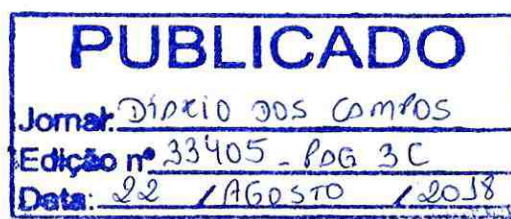 PUBLICADO
Jornal: DIÁRIO DOS CAMPOS
Edição nº 33405 - PAG 3C
Data: 22 / AGOSTO / 2018